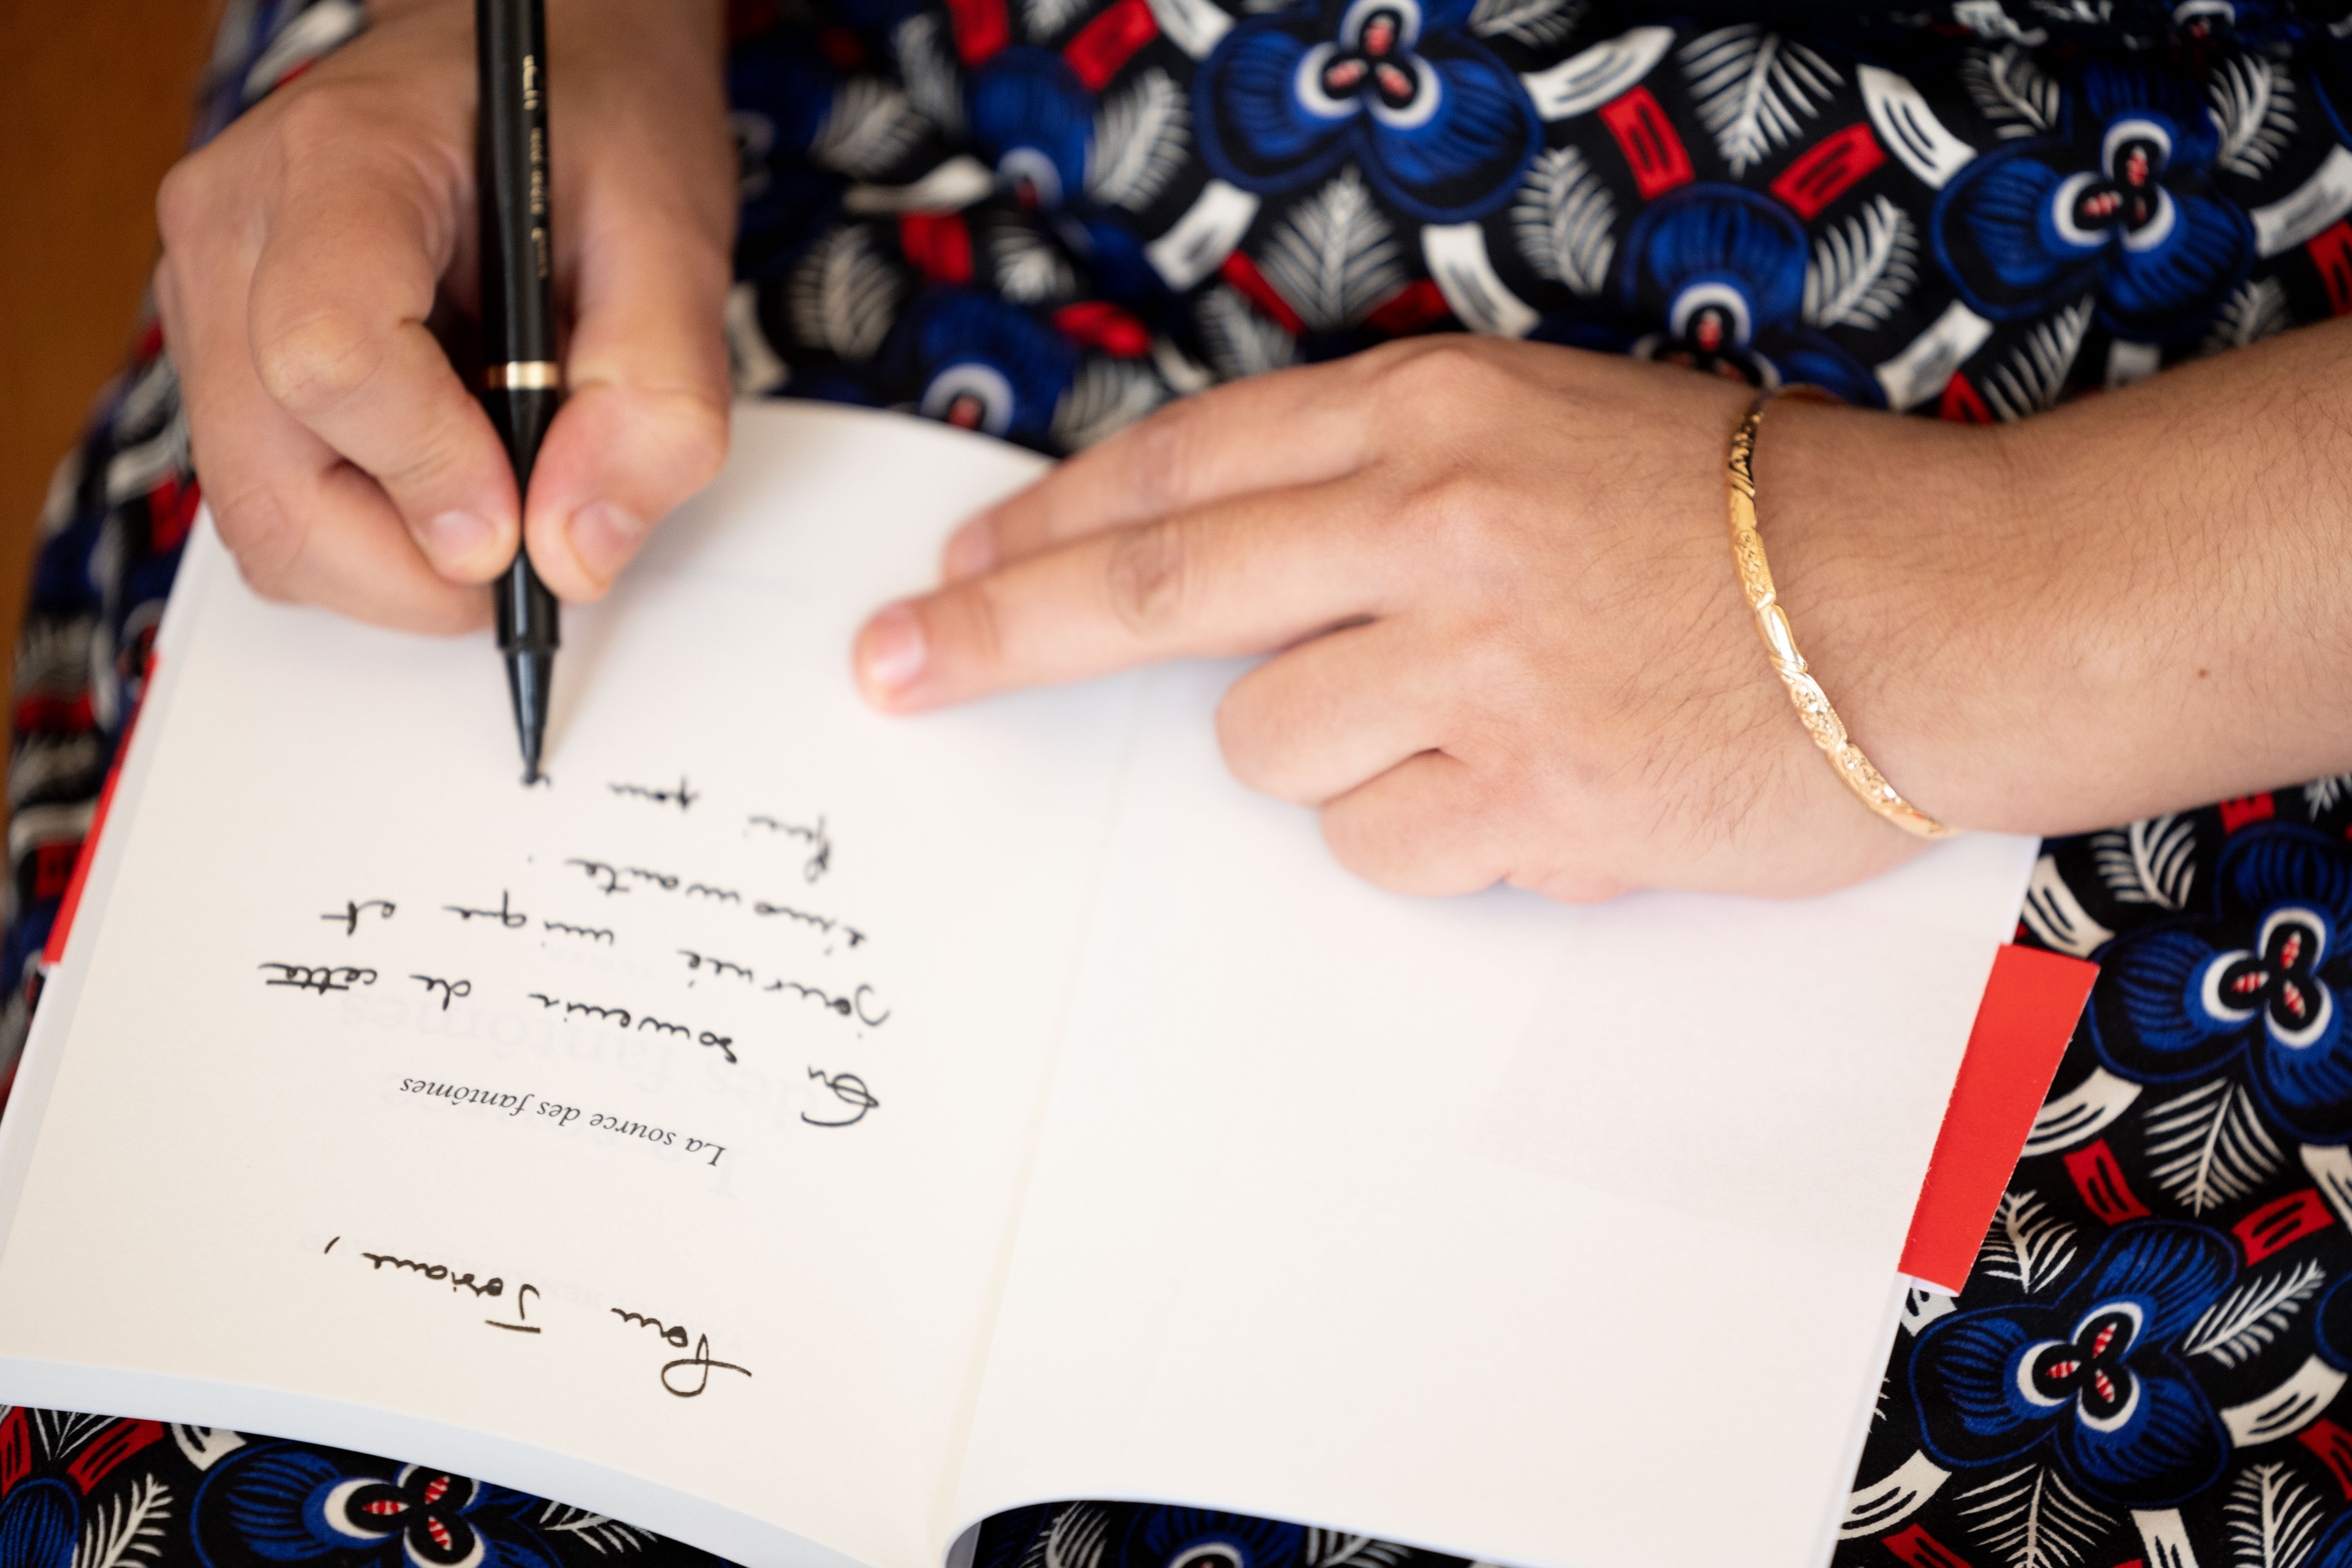 Pour Josiane,
La source des fantômes
En souvenir de cette
journée unique et
émouvante.
pour